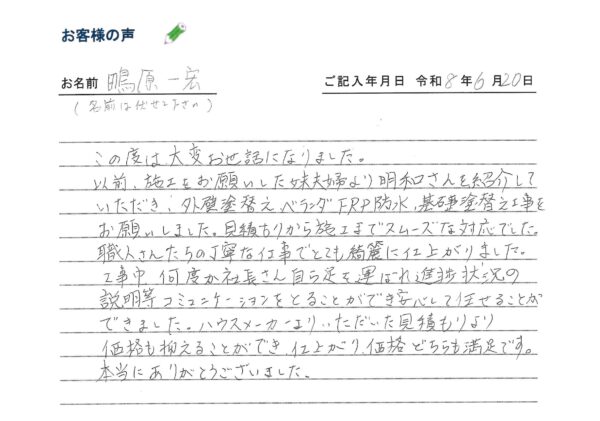 お客様の声
お名前 鴫原 一宏
ご記入年月日 令和8年6月20日
(名前は伏せて下さい)
この度は大変お世話になりました。
以前、施工をお願いした妹夫婦より明和さんを紹介して
いただき、外壁塗替え、ベランダFRP防水、基礎塗替え工事を
お願いしました。見積もりから施工までスムーズな対応でした。
職人さんたちの丁寧な仕事でとても綺麗に仕上がりました。
工事中、何度か社長さん自ら足を運ばれ進捗状況の
説明等コミュニケーションをとることができ安心して任せることが
できました。ハウスメーカーよりいただいた見積もりより
価格も抑えることができ、仕上がり、価格どちらも満足です。
本当にありがとうございました。